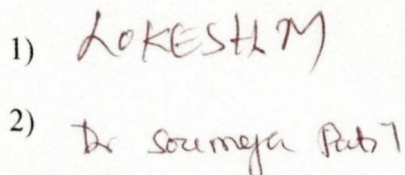 1) LOKESH M
2) Dr Soumya Patil